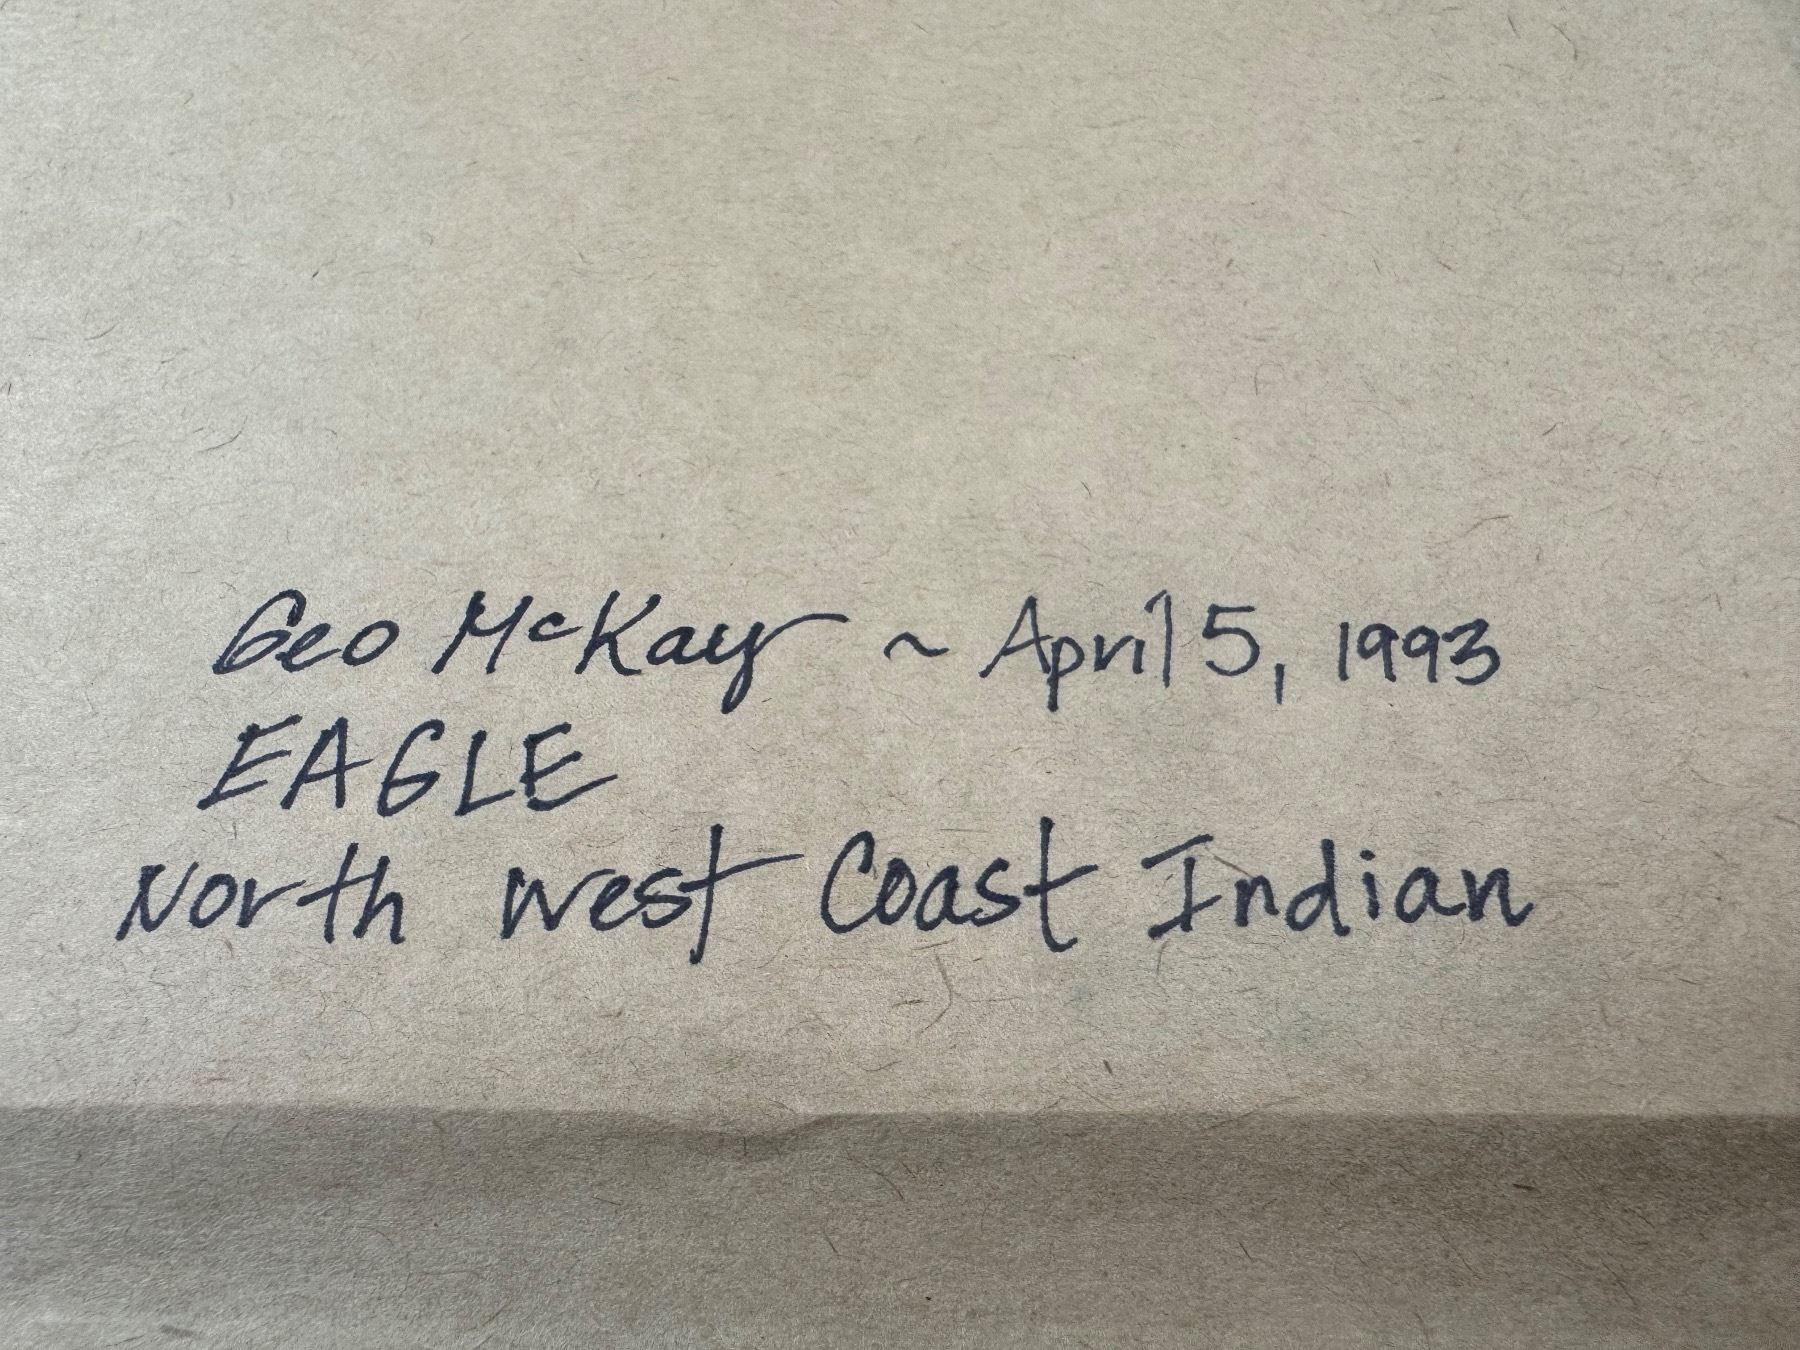 Geo McKay ~ April 5, 1993
EAGLE
North West Coast Indian